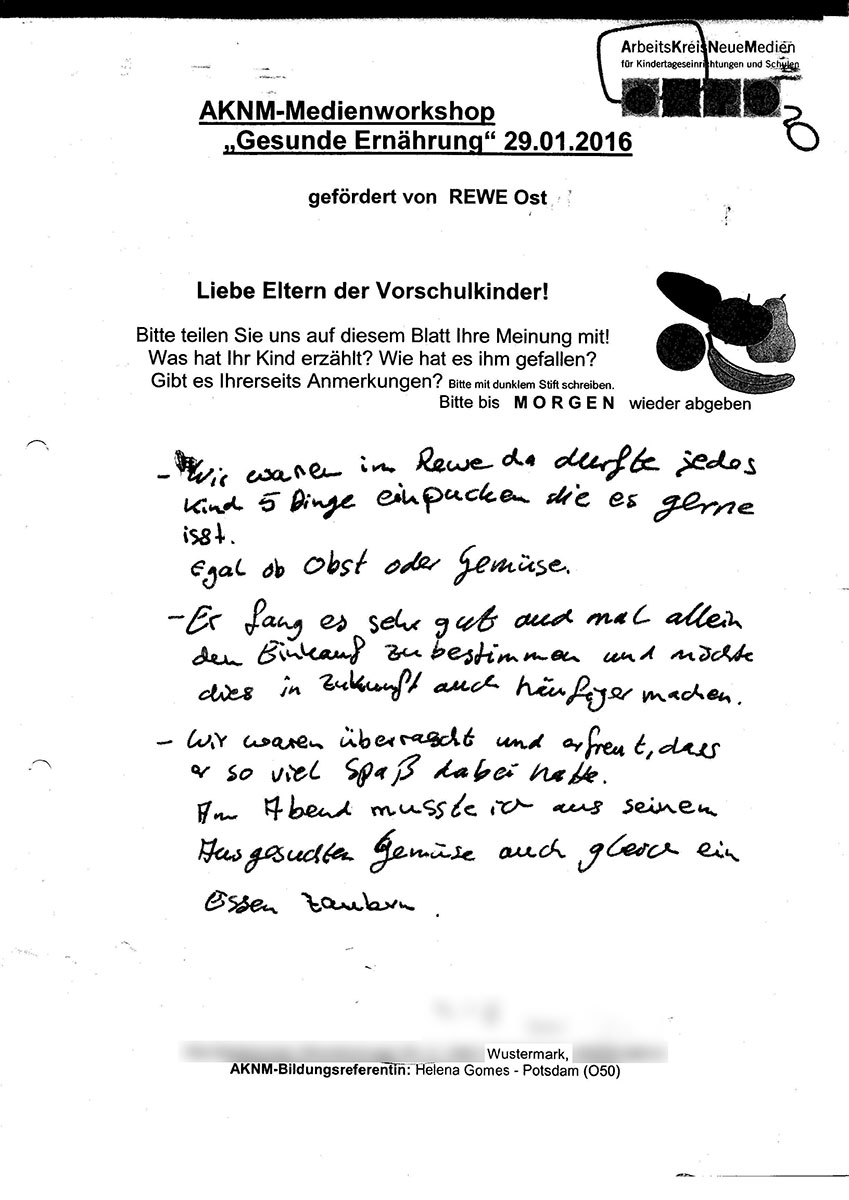 ArbeitsKreisNeueMedien
für Kindertageseinrichtungen und Schulen
AKNM-Medienworkshop
„Gesunde Ernährung“ 29.01.2016
gefördert von REWE Ost
Liebe Eltern der Vorschulkinder!
Bitte teilen Sie uns auf diesem Blatt Ihre Meinung mit!
Was hat Ihr Kind erzählt? Wie hat es ihm gefallen?
Gibt es Ihrerseits Anmerkungen? Bitte mit dunklem Stift schreiben.
Bitte bis MORGEN wieder abgeben
- Wir waren im Rewe da durfte jedes
Kind 5 Dinge einpacken die es gerne
isst.
Egal ob Obst oder Gemüse.
- Er fang es sehr gut auch mal allein
den Einkauf zu bestimmen und möchte
dies in Zukunft auch häufiger machen.
- Wir waren überrascht und erfreut, dass
er so viel Spaß dabei hatte.
Am Abend musste ich aus seinem
Ausgesuchten Gemüse auch gleich ein
Essen zaubern.
Wustermark,
AKNM-Bildungsreferentin: Helena Gomes - Potsdam (O50)